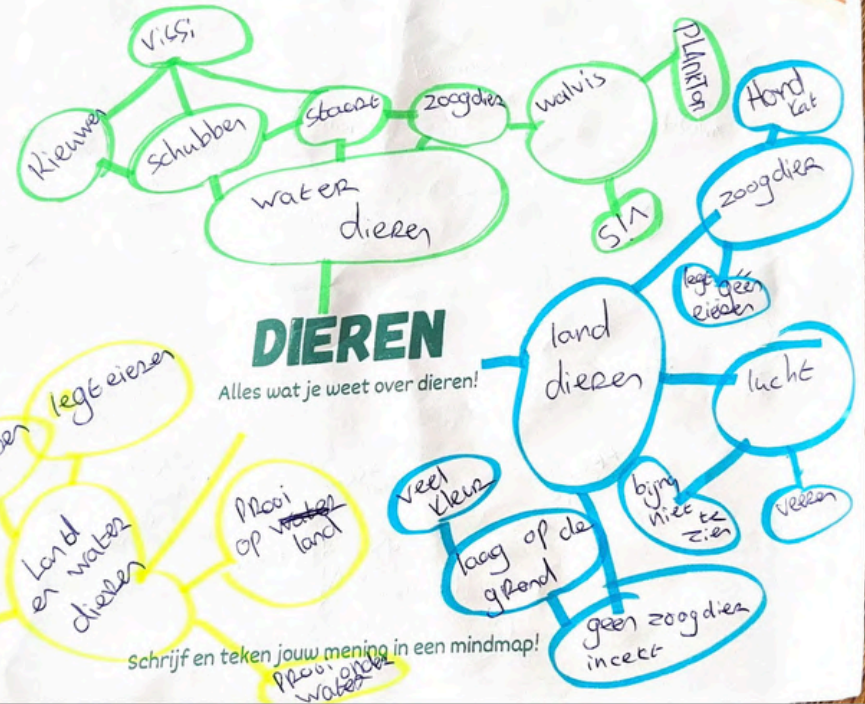 vissi
Kieuwen
schubben
staart
zoogdier
walvis
PLANKTON
vis
water
dieren
Hond
kat
zoogdier
legt géén
eieren
DIEREN
Alles wat je weet over dieren!
land
dieren
lucht
bijna
niet te
zien
veren
veel
kleur
laag op de
grond
geen zoogdier
incekt
legt eieren
Land
en water
dieren
Prooi
op water
land
Prooi onder
water
Schrijf en teken jouw mening in een mindmap!